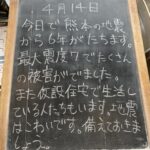 4月14日
今日で熊本の地震
から6年がたちます。
最大震度7でたくさん
の被害がでました。
まだ仮設住宅で生活し
ている人たちもいます。地震
はこわいです。備えておきま
しょう。